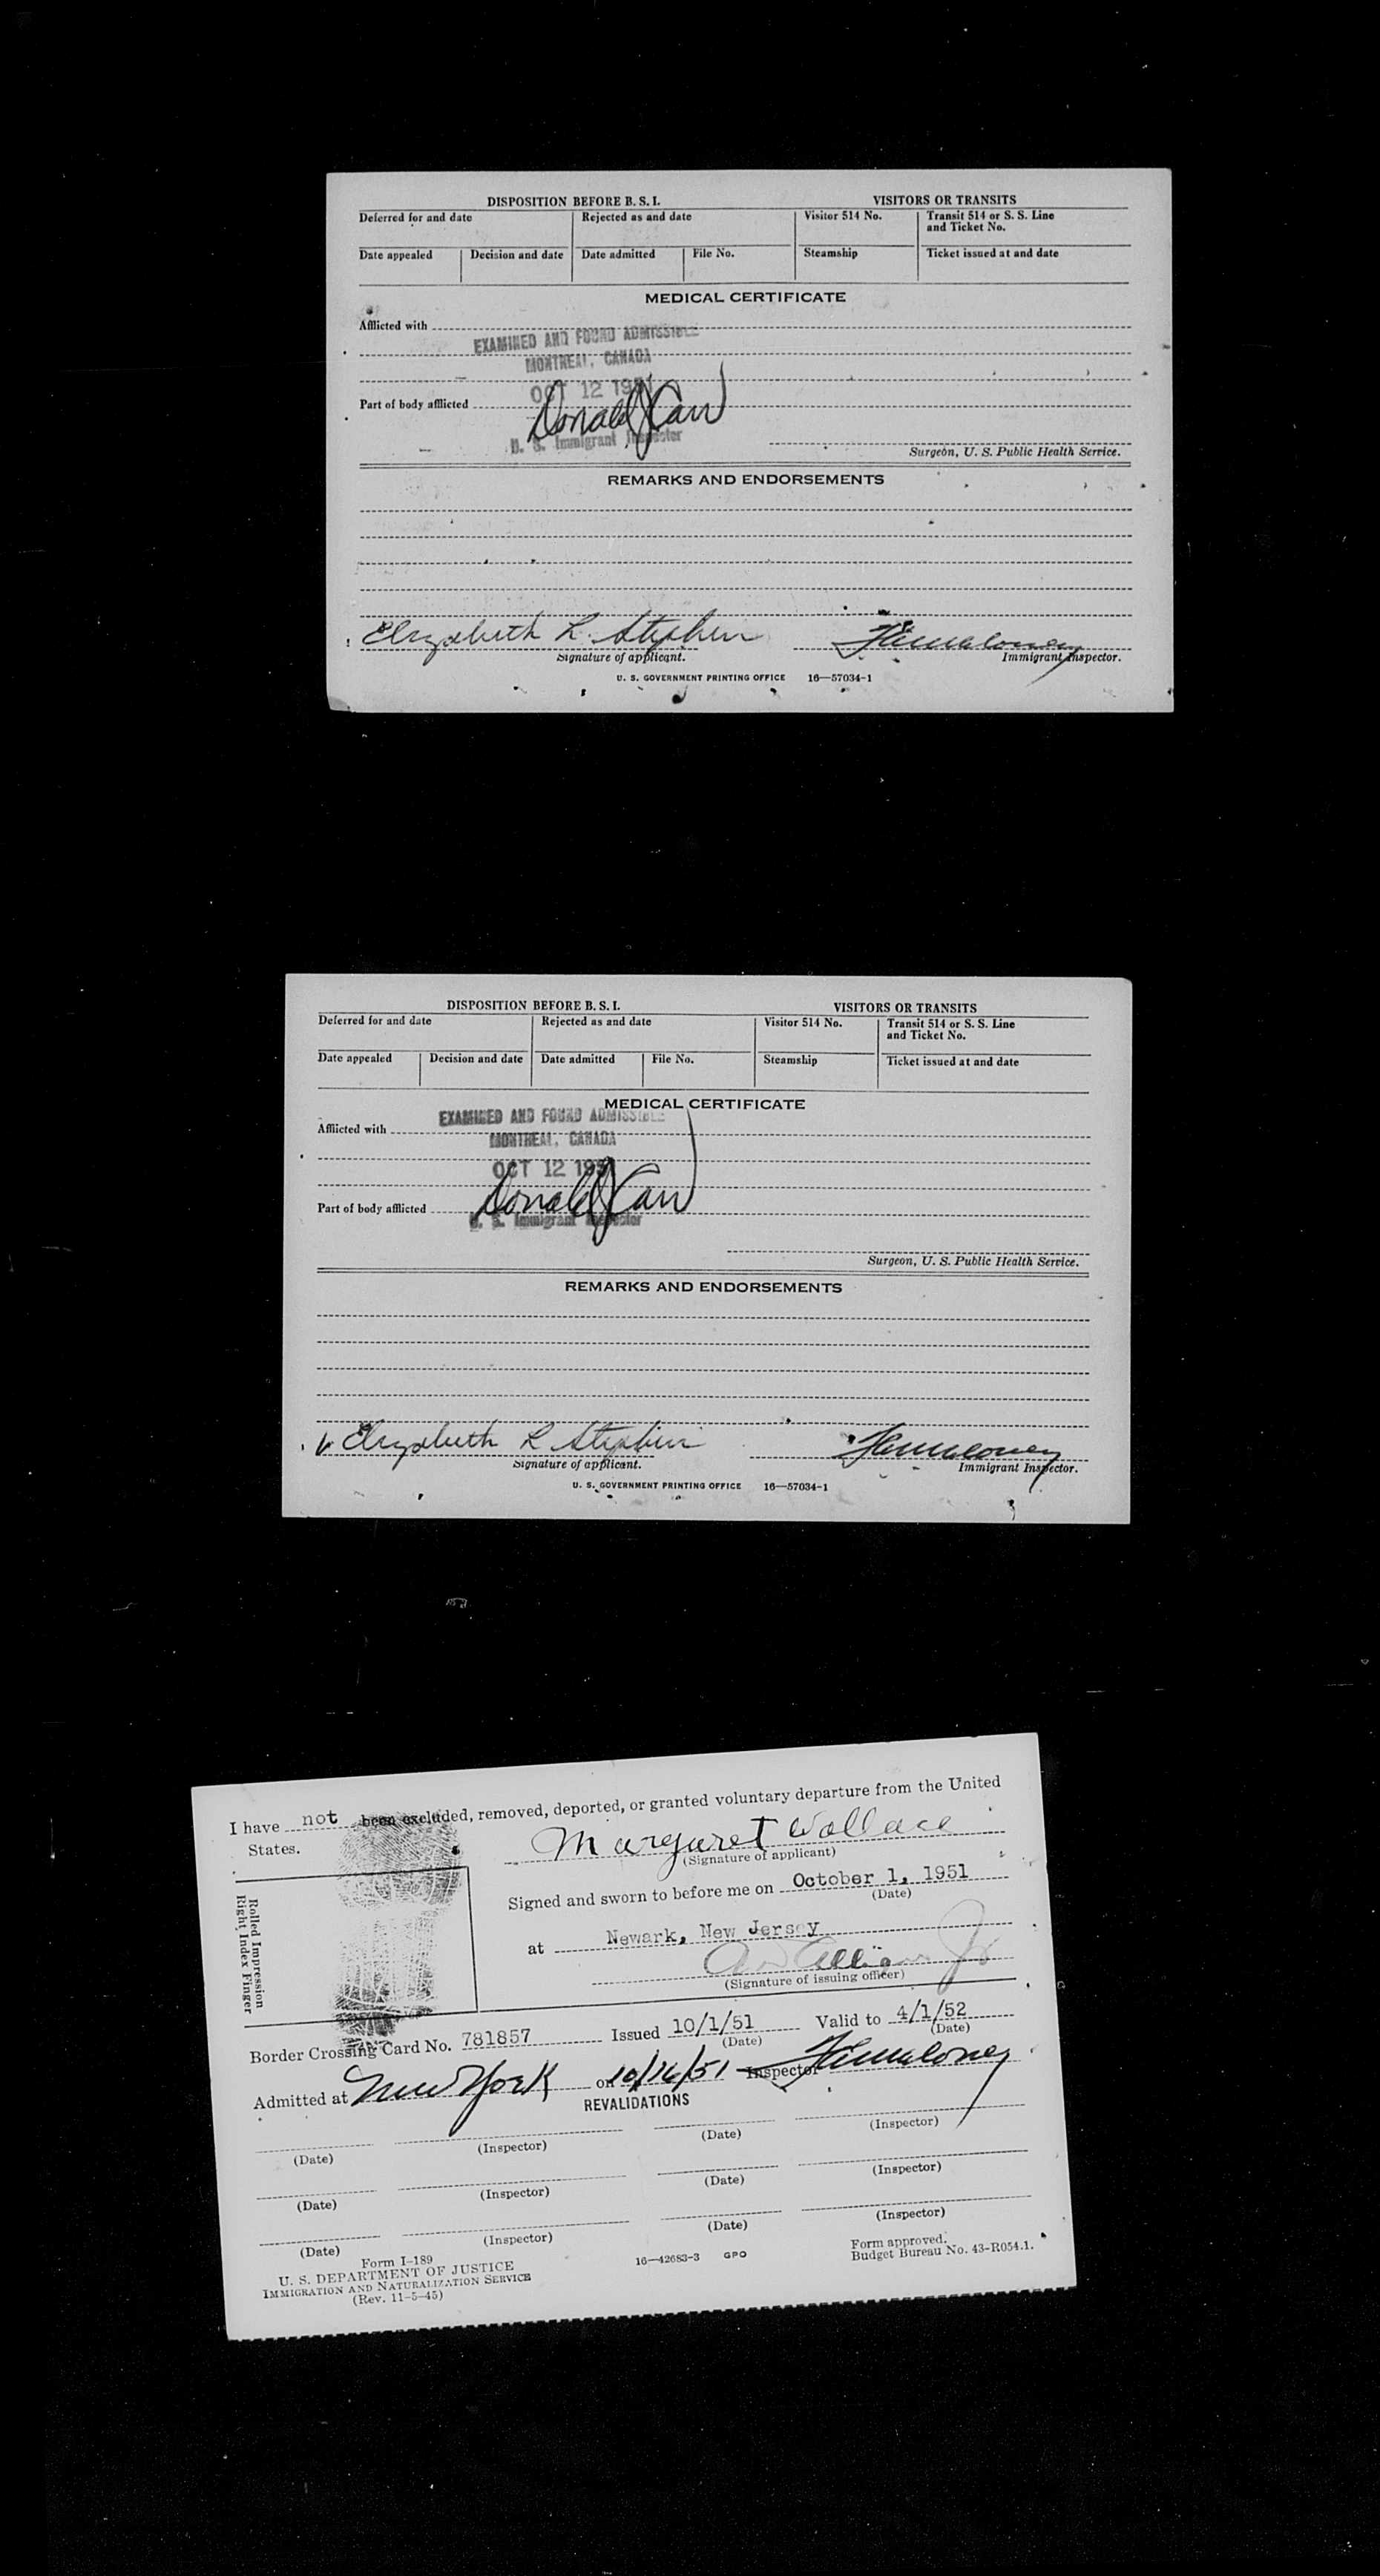 DISPOSITION BEFORE B. S. I. VISITORS OR TRANSITS
Deferred for and date Rejected as and date Visitor 514 No. Transit 514 or S. S. Line
and Ticket No.
Date appealed Decision and date Date admitted File No. Steamship Ticket issued at and date
MEDICAL CERTIFICATE
Afflicted with
EXAMINED AND FOUND ADMISSIBLE
MONTREAL, CANADA
OCT 12 1951
Part of body afflicted
Donald J Carr
U. S. Immigrant Inspector
Surgeon, U. S. Public Health Service.
REMARKS AND ENDORSEMENTS
Elizabeth R. Stephen
Signature of applicant. Immigrant Inspector.
U. S. GOVERNMENT PRINTING OFFICE 16—57034-1
DISPOSITION BEFORE B. S. I. VISITORS OR TRANSITS
Deferred for and date Rejected as and date Visitor 514 No. Transit 514 or S. S. Line
and Ticket No.
Date appealed Decision and date Date admitted File No. Steamship Ticket issued at and date
MEDICAL CERTIFICATE
EXAMINED AND FOUND ADMISSIBLE
Afflicted with
MONTREAL, CANADA
OCT 12 1951
Part of body afflicted Donald J Carr
U. S. Immigrant Inspector
Surgeon, U. S. Public Health Service.
REMARKS AND ENDORSEMENTS
Elizabeth R Stephen
Signature of applicant. Immigrant Inspector.
U. S. GOVERNMENT PRINTING OFFICE 16—57034-1
I have not been excluded, removed, deported, or granted voluntary departure from the United
States.
Margaret Wallace
(Signature of applicant)
Signed and sworn to before me on October 1, 1951
(Date)
at Newark, New Jersey
(Signature of issuing officer)
Rolled Impression
Right Index Finger
Border Crossing Card No. 781857 Issued 10/1/51 Valid to 4/1/52
(Date) (Date)
Admitted at New York on 10/16/51 Inspector
REVALIDATIONS
(Date) (Inspector) (Date) (Inspector)
(Date) (Inspector) (Date) (Inspector)
(Date) (Inspector) (Date) (Inspector)
Form I-189
U. S. DEPARTMENT OF JUSTICE
IMMIGRATION AND NATURALIZATION SERVICE
(Rev. 11-5-45)
16—42683-3 GPO
Form approved.
Budget Bureau No. 43-R054.1.